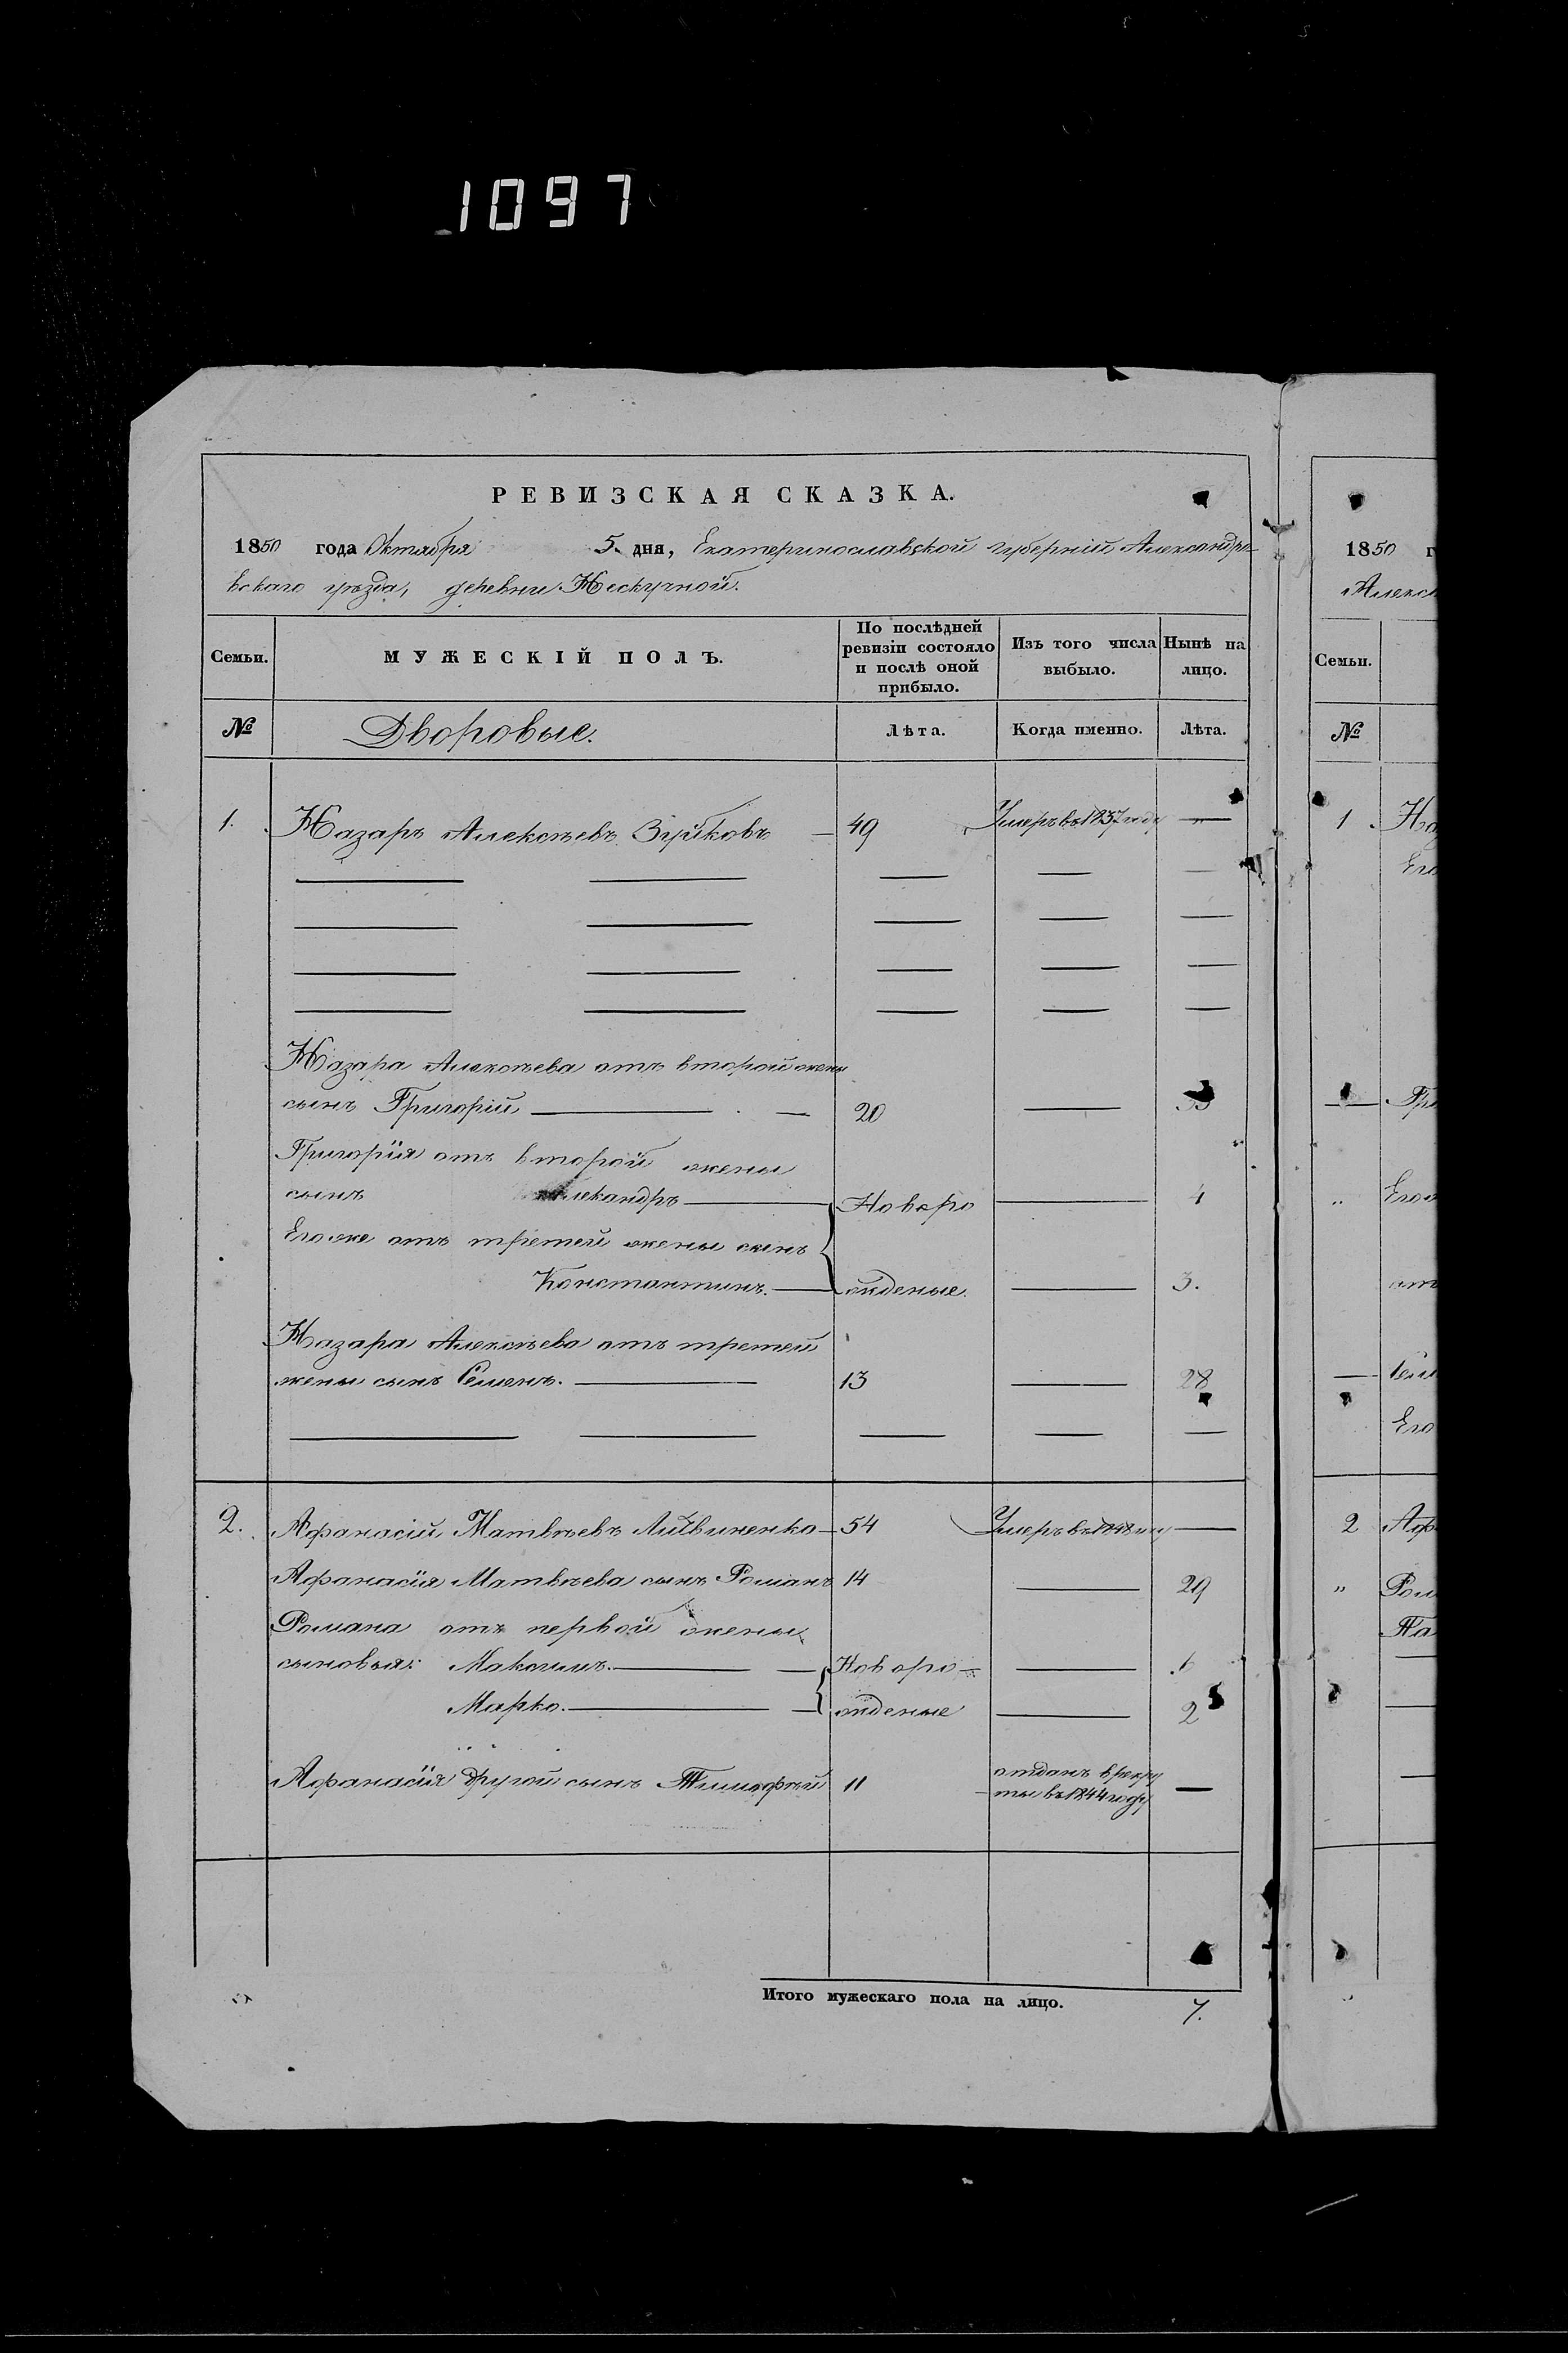 1097
РЕВИЗСКАЯ СКАЗКА.
1850 года Октября 5. дня, Екатеринославской губерніи Александро-
вскаго уѣзда, деревни Нескучной.
Семьи. МУЖЕСКІЙ ПОЛЪ. По послѣдней ревизіи состояло и послѣ оной прибыло. Изъ того числа выбыло. Нынѣ на лицо.
№ Дворовые. Лѣта. Когда именно. Лѣта.
1. Назаръ Алексѣевъ Зуйковъ 49 Умеръ въ 1837 году —
Назара Алексѣева отъ второй жены
сынъ Григорій — 20 —
Григорія отъ второй жены
сынъ Александръ — Новоро — 4
Его же отъ третей жены сынъ
Константинъ. — жденые. — 3.
Назара Алексѣева отъ третей
жены сынъ Семенъ. — 13 — 28
2. Афанасій Матвѣевъ Литвиненко — 54 Умеръ въ 1848 году —
Афанасія Матвѣева сынъ Романъ 14 — 29
Романа отъ первой жены
сыновья: Максимъ. — Новоро — 6
Марко. — жденые — 2
Афанасія другой сынъ Тимофѣй 11 отданъ в рекру
ты въ 1844 году —
Итого мужескаго пола на лицо. 7.
1850 г
Алекса
Семьи.
№
1 На
Его
— Гри
Его
от
— Сем
Его
2 Аф
" Ром
Па